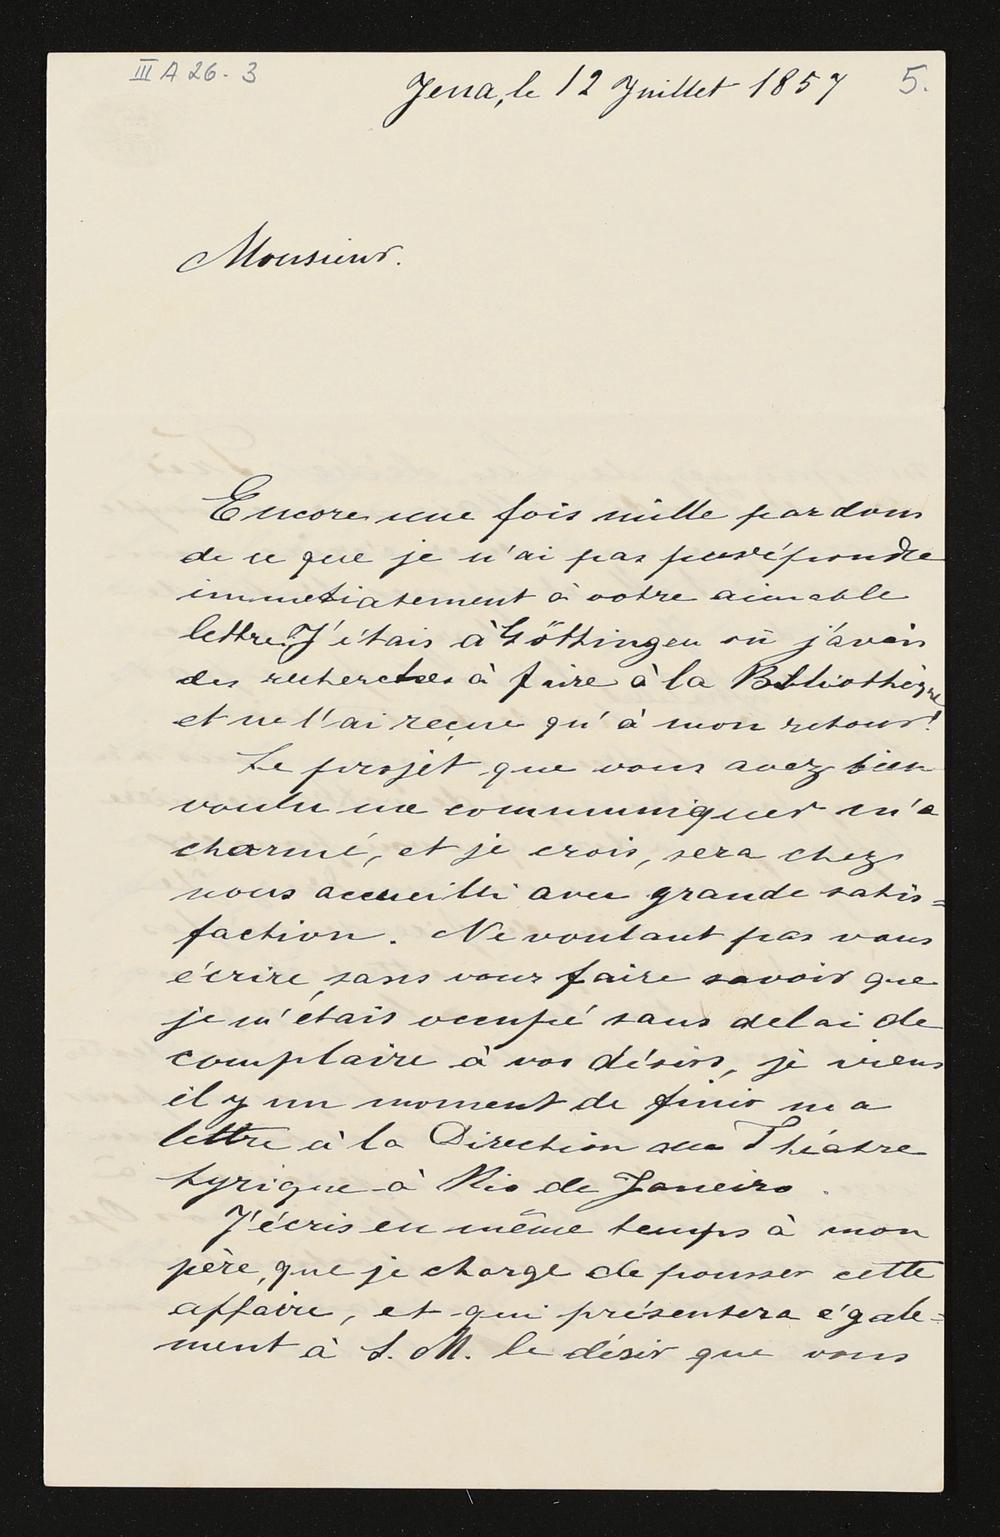 III A 26. 3
Jena, le 12 Juillet 1857
5.
Monsieur.
Encore une fois mille pardons
de ce que je n'ai pas pu répondre
immetiatement à votre aimable
lettre. J'étais à Göttingen où j'avais
des recherches à faire à la Bibliothèque
et ne l'ai reçue qu'à mon retour!
Le projet que vous avez bien
voulu me communiquer m'a
charmé, et je crois, sera chez
nous accueilli avec grande satis=
faction. Ne voulant pas vous
écrire, sans vous faire savoir que
je m'étais occupé sans delai de
complaire à vos désirs, je viens
il y un moment de finir ma
lettre à la Direction du Théatre
Lyrique à Rio de Janeiro.
J'écris en même temps à mon
père, que je charge de pousser cette
affaire, et qui présentera égale=
ment à S. M. le désir que vous